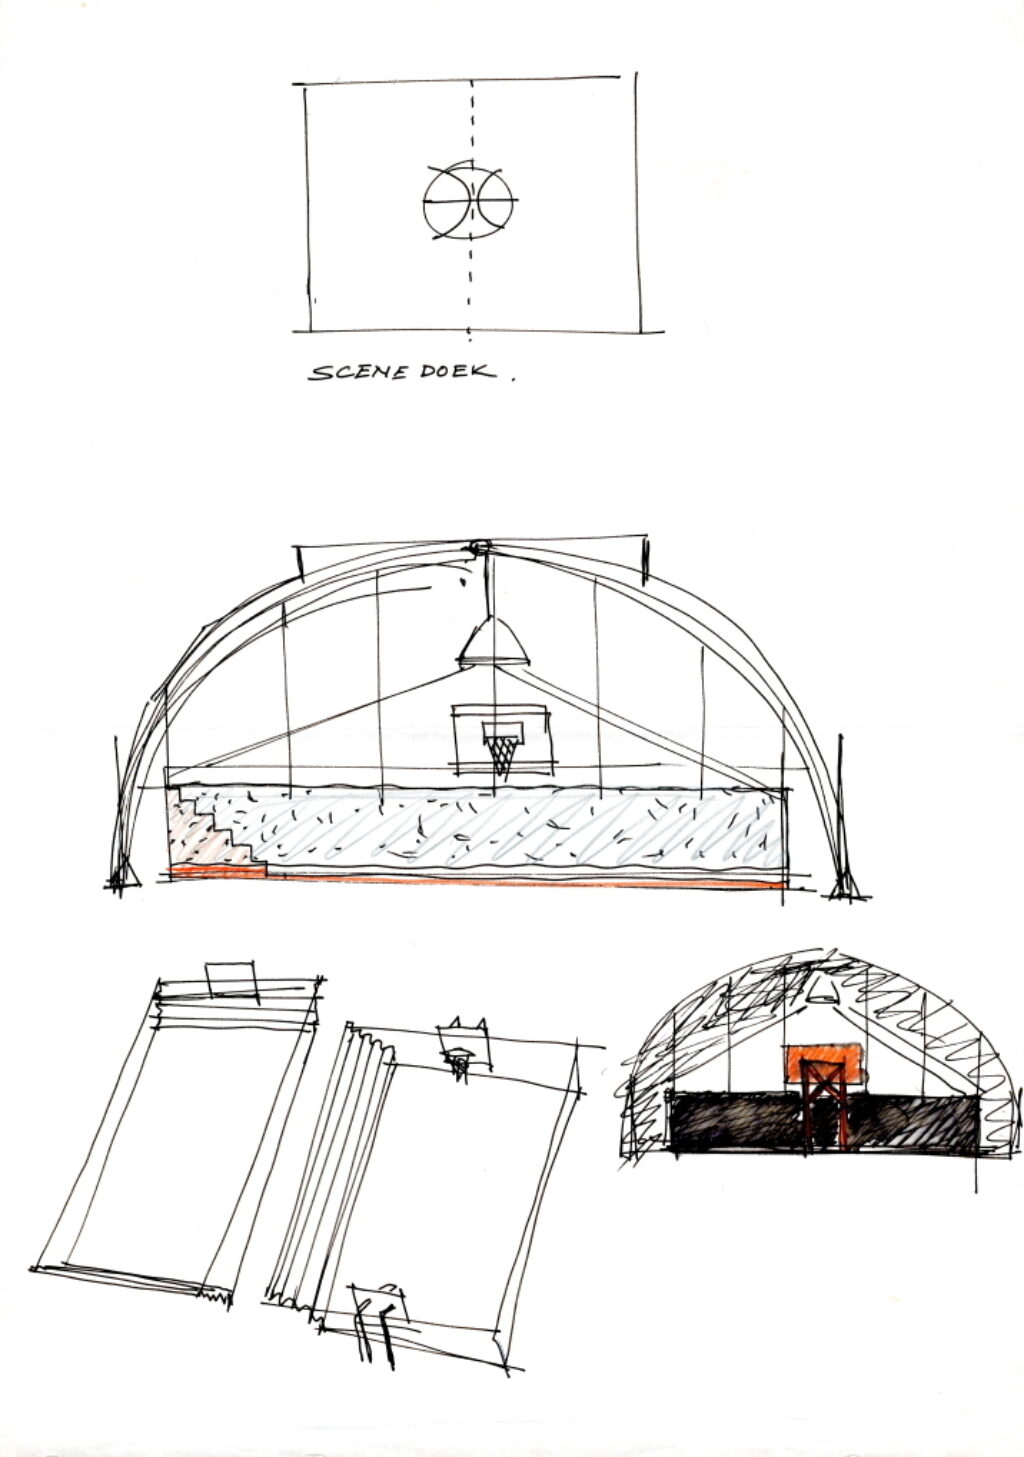 SCENE DOEK.